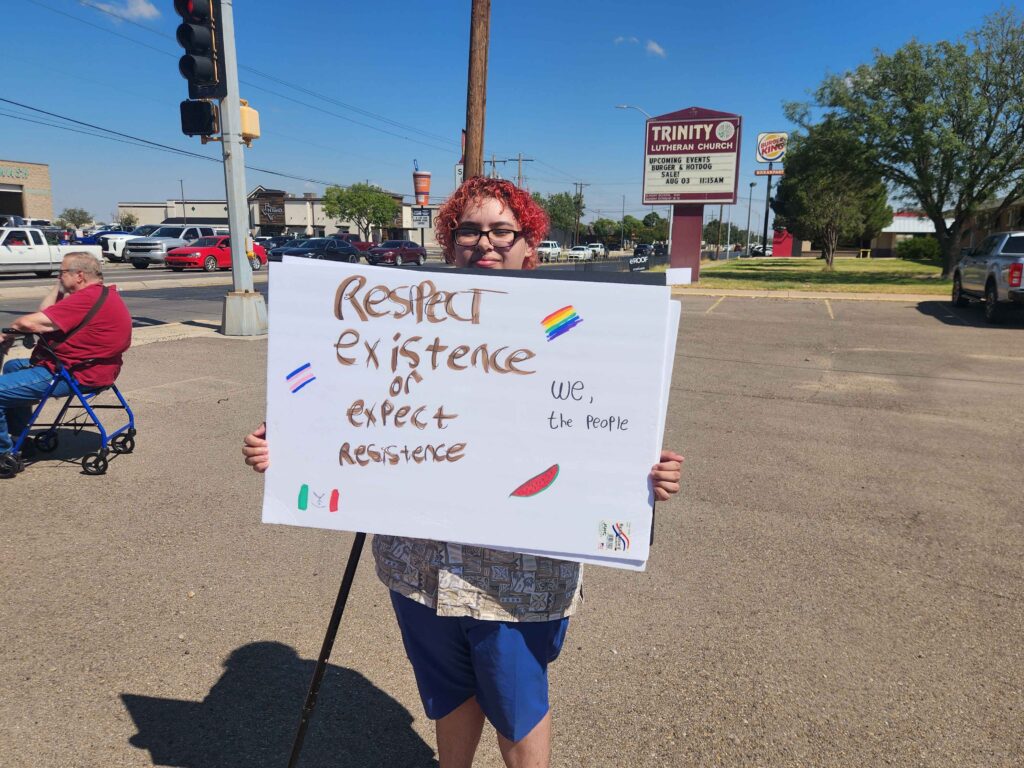 TRINITY
LUTHERAN CHURCH
UPCOMING EVENTS
BURGER & HOTDOG
SALE!
AUG 03 11:15AM
BURGER
KING
RESPECT
existence
or
expect
Resistence
we,
the People